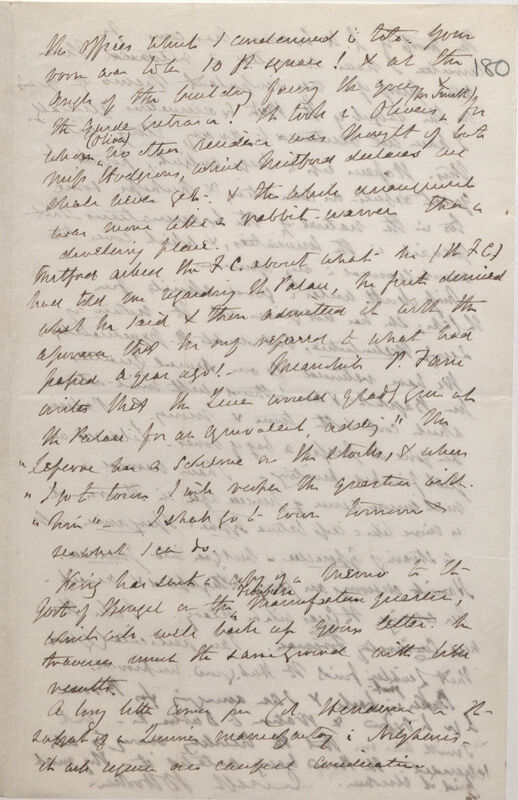 the offices which I condemned in toto. Your
room was to be 10 ft. square! & at the
180
angle of the building facing the
the Guards Entrance! It took in Oliver's (or Smith)
whom (Oliver) no other residence was thought of but
Miss Hodgsons, which Mitford declares we
shall never get. & the whole arrangement
was more like a rabbit-warren than a
dwelling place.
Mitford asked the F.C. about what he (the F.C.)
had told me regarding the Palace, he first denied
what he said & then admitted it with the
that he only referred to what had
passed a year ago! Meanwhile P.
writes that the Queen would gladly give up
the Palace for an equivalent, adding "Mr
"Lefevre has a scheme on the stocks, & when
"I go to town I will reopen the question with
"him" — I shall go to town tomorrow &
see what I can do.
King has sent a copy of a Memo to the
Govt of Bengal on the Manufacture question,
which will well back up your letter. He
traverses much the same ground with like
results.
A long letter came from on the
subject of a Quinine manufactory in
it will require careful consideration